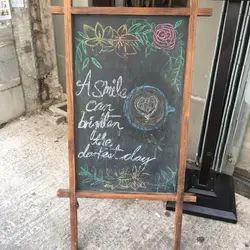 A Smile
can
briten
the
darkest day